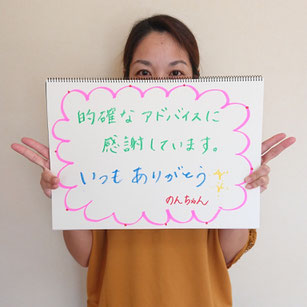 的確なアドバイスに
感謝しています。
いつも ありがとう
のんちゃん